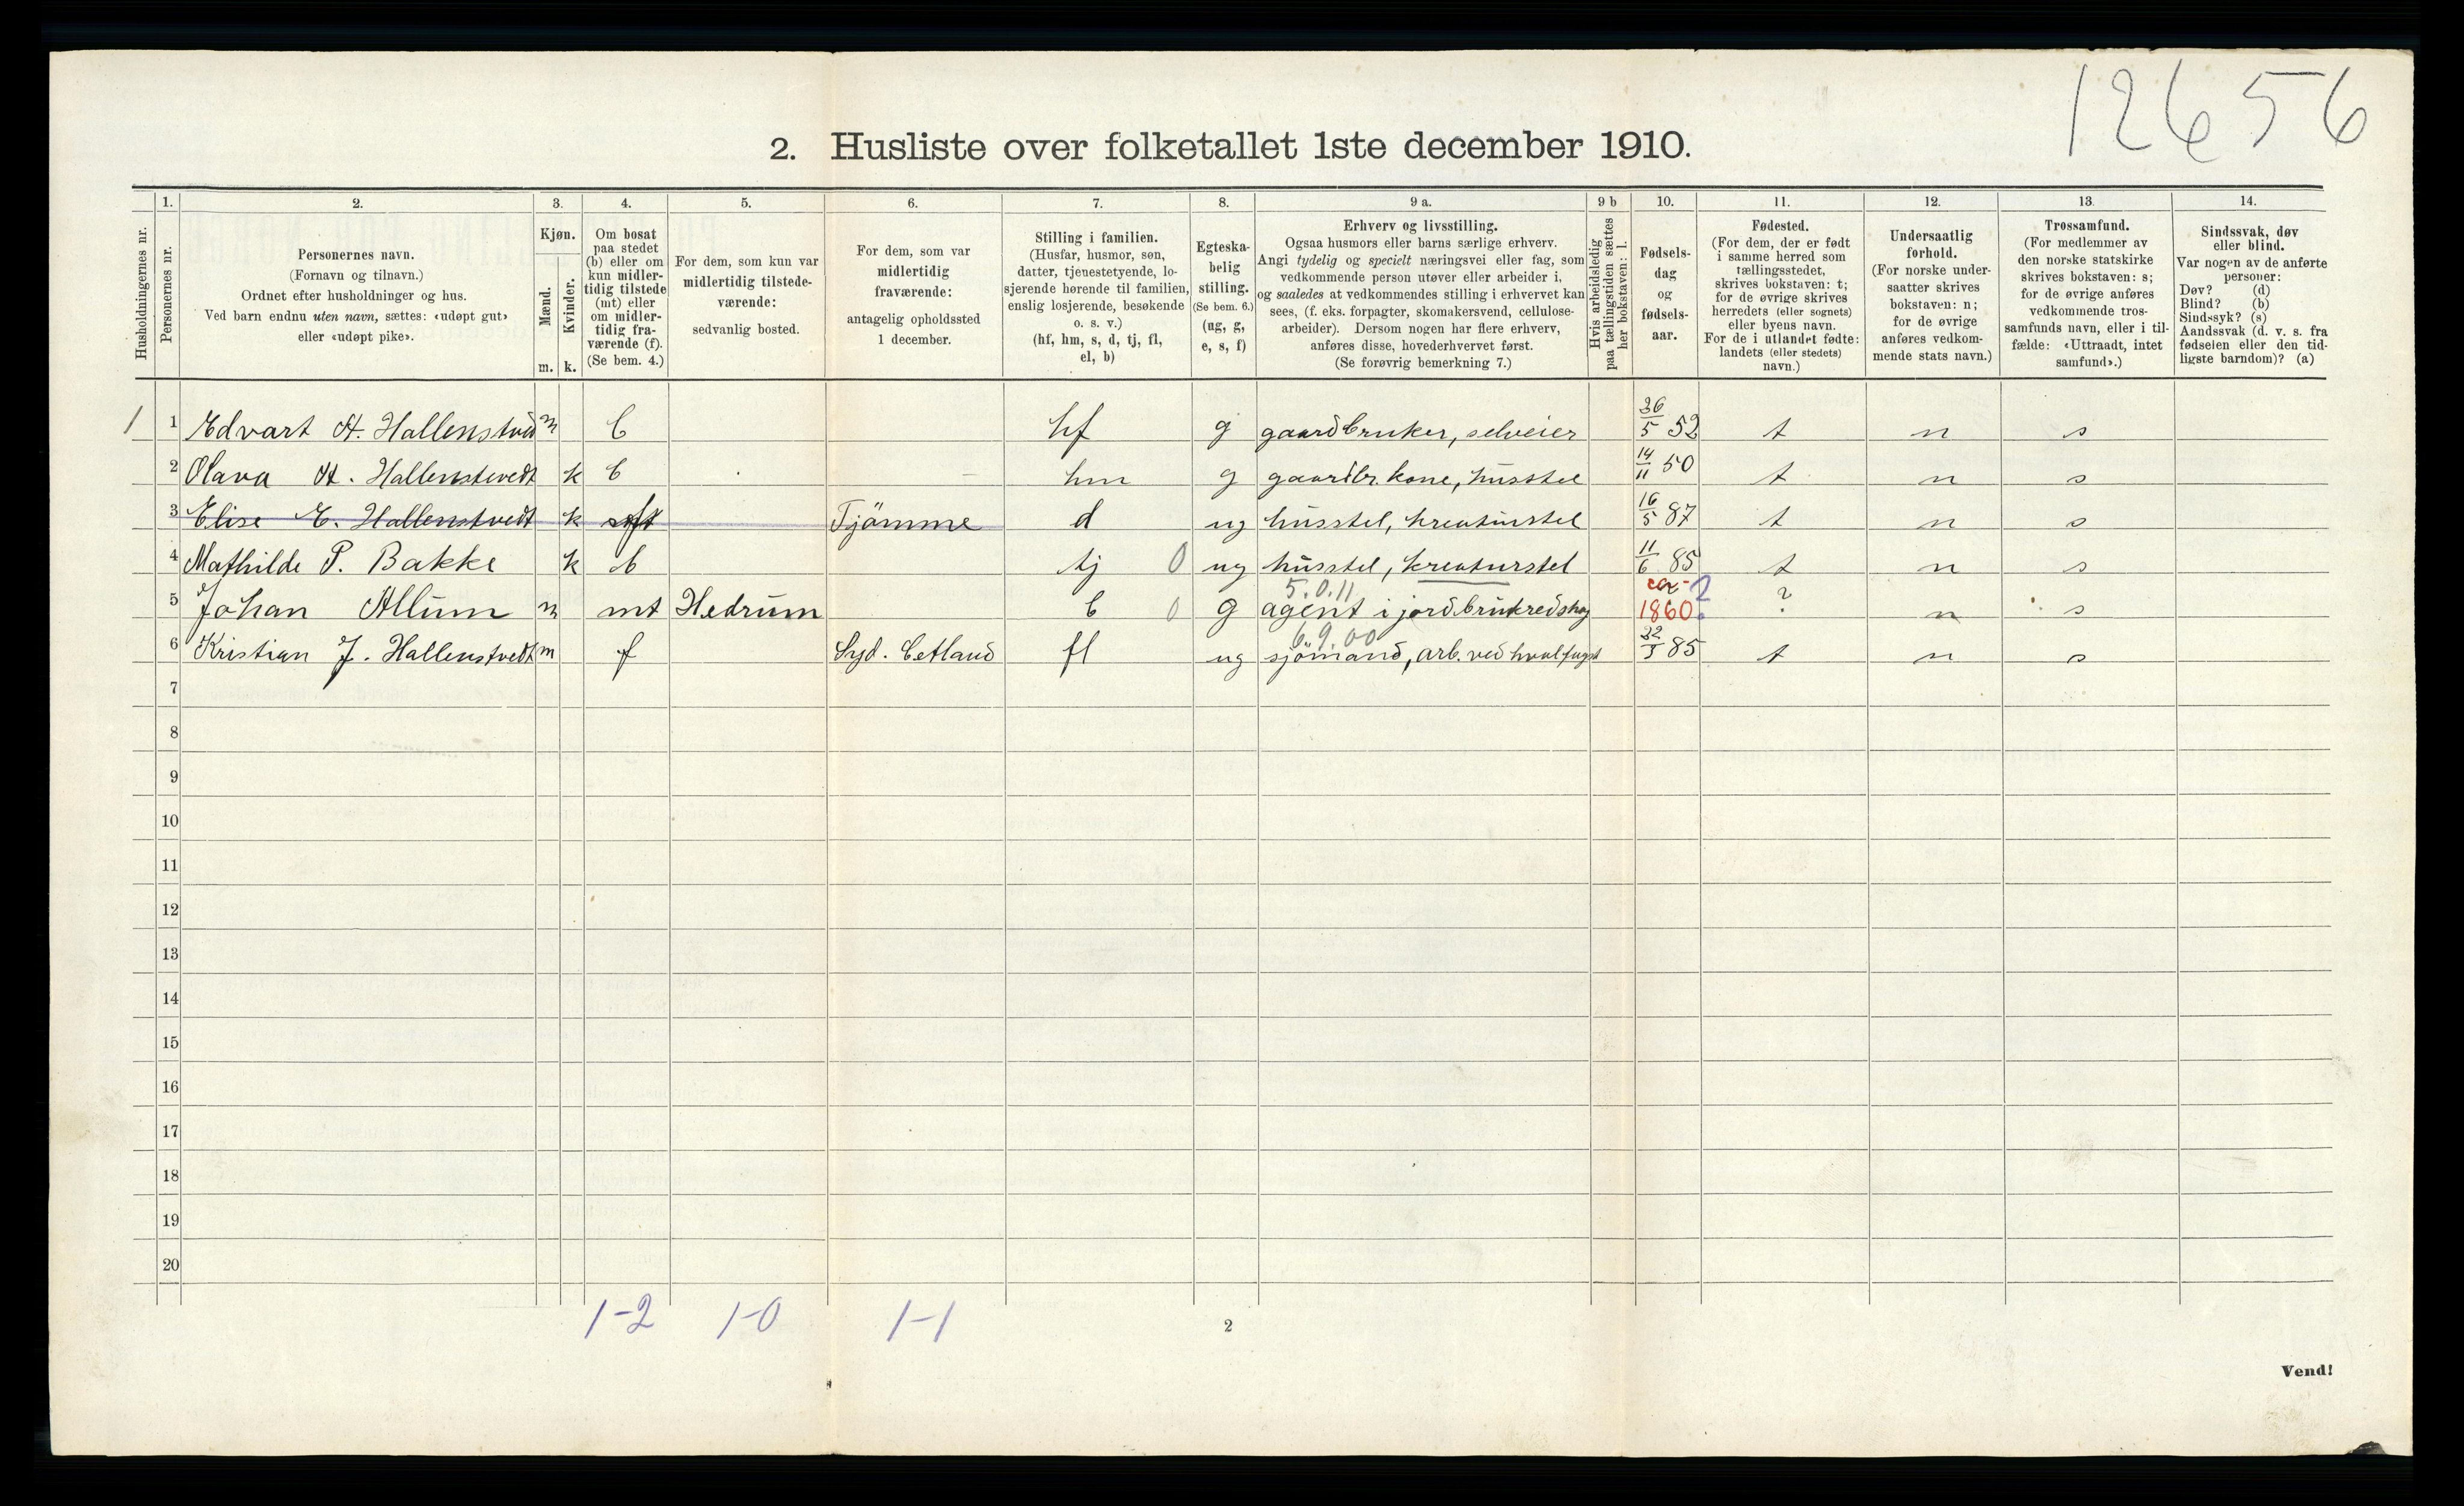 12656
2. Husliste over folketallet 1ste december 1910.
Husholdningernes nr.
1.
Personernes nr.
2.
Personernes navn.
(Fornavn og tilnavn.)
Ordnet efter husholdninger og hus.
Ved barn endnu uten navn, sættes: «udøpt gut»
eller «udøpt pike».
3.
Kjøn.
Mænd.
Kvinder.
m. k.
4.
Om bosat
paa stedet
(b) eller om
kun midler-
tidig tilstede
(mt) eller
om midler-
tidig fra-
værende (f).
(Se bem. 4.)
5.
For dem, som kun var
midlertidig tilstede-
værende:
sedvanlig bosted.
6.
For dem, som var
midlertidig
fraværende:
antagelig opholdssted
1 december.
7.
Stilling i familien.
(Husfar, husmor, søn,
datter, tjenestetyende, lo-
sjerende hørende til familien,
enslig losjerende, besøkende
o. s. v.)
(hf, hm, s, d, tj, fl,
el, b)
8.
Egteska-
belig
stilling.
(Se bem. 6.)
(ug, g,
e, s, f)
9 a.
Erhverv og livsstilling.
Ogsaa husmors eller barns særlige erhverv.
Angi tydelig og specielt næringsvei eller fag, som
vedkommende person utøver eller arbeider i,
og saaledes at vedkommendes stilling i erhvervet kan
sees, (f. eks. forpagter, skomakersvend, cellulose-
arbeider). Dersom nogen har flere erhverv,
anføres disse, hovederhvervet først.
(Se forøvrig bemerkning 7.)
9 b
Hvis arbeidsledig
paa tællingstiden sættes
her bokstaven: l.
10.
Fødsels-
dag
og
fødsels-
aar.
11.
Fødested.
(For dem, der er født
i samme herred som
tællingsstedet,
skrives bokstaven: t;
for de øvrige skrives
herredets (eller sognets)
eller byens navn.
For de i utlandet fødte:
landets (eller stedets)
navn.)
12.
Undersaatlig
forhold.
(For norske under-
saatter skrives
bokstaven: n;
for de øvrige
anføres vedkom-
mende stats navn.)
13.
Trossamfund.
(For medlemmer av
den norske statskirke
skrives bokstaven: s;
for de øvrige anføres
vedkommende tros-
samfunds navn, eller i til-
fælde: «Uttraadt, intet
samfund».)
14.
Sindssvak, døv
eller blind.
Var nogen av de anførte
personer:
Døv? (d)
Blind? (b)
Sindssyk? (s)
Aandssvak (d. v. s. fra
fødselen eller den tid-
ligste barndom)? (a)
1 1 Edvart A. Hallenstved m b hf g gaardbruker, selveier 26/5 52 t n s
2 Olava A. Hallenstevedt k b hm g gaardbr. kone, husstel 14/11 50 t n s
3 Elise E. Hallenstvedt k Tjømme d ug husstel, kreaturstel 16/5 87 t n s
4 Mathilde P. Bakke k b tj 0 ug husstel, kreaturstel 11/6 85 t n s
5.0.11 ca ?
5 Johan Allum m mt Hedrum b 0 g agent i jordbrukredskap 1860 ? n s
6.9.00
6 Kristian J. Hallenstvedt m f Syd. fl ug sjömand, arb. ved hvalfangst 85 t n s
7
8
9
10
11
12
13
14
15
16
17
18
19
20
1-2 1-0 1-1
2
Vend!